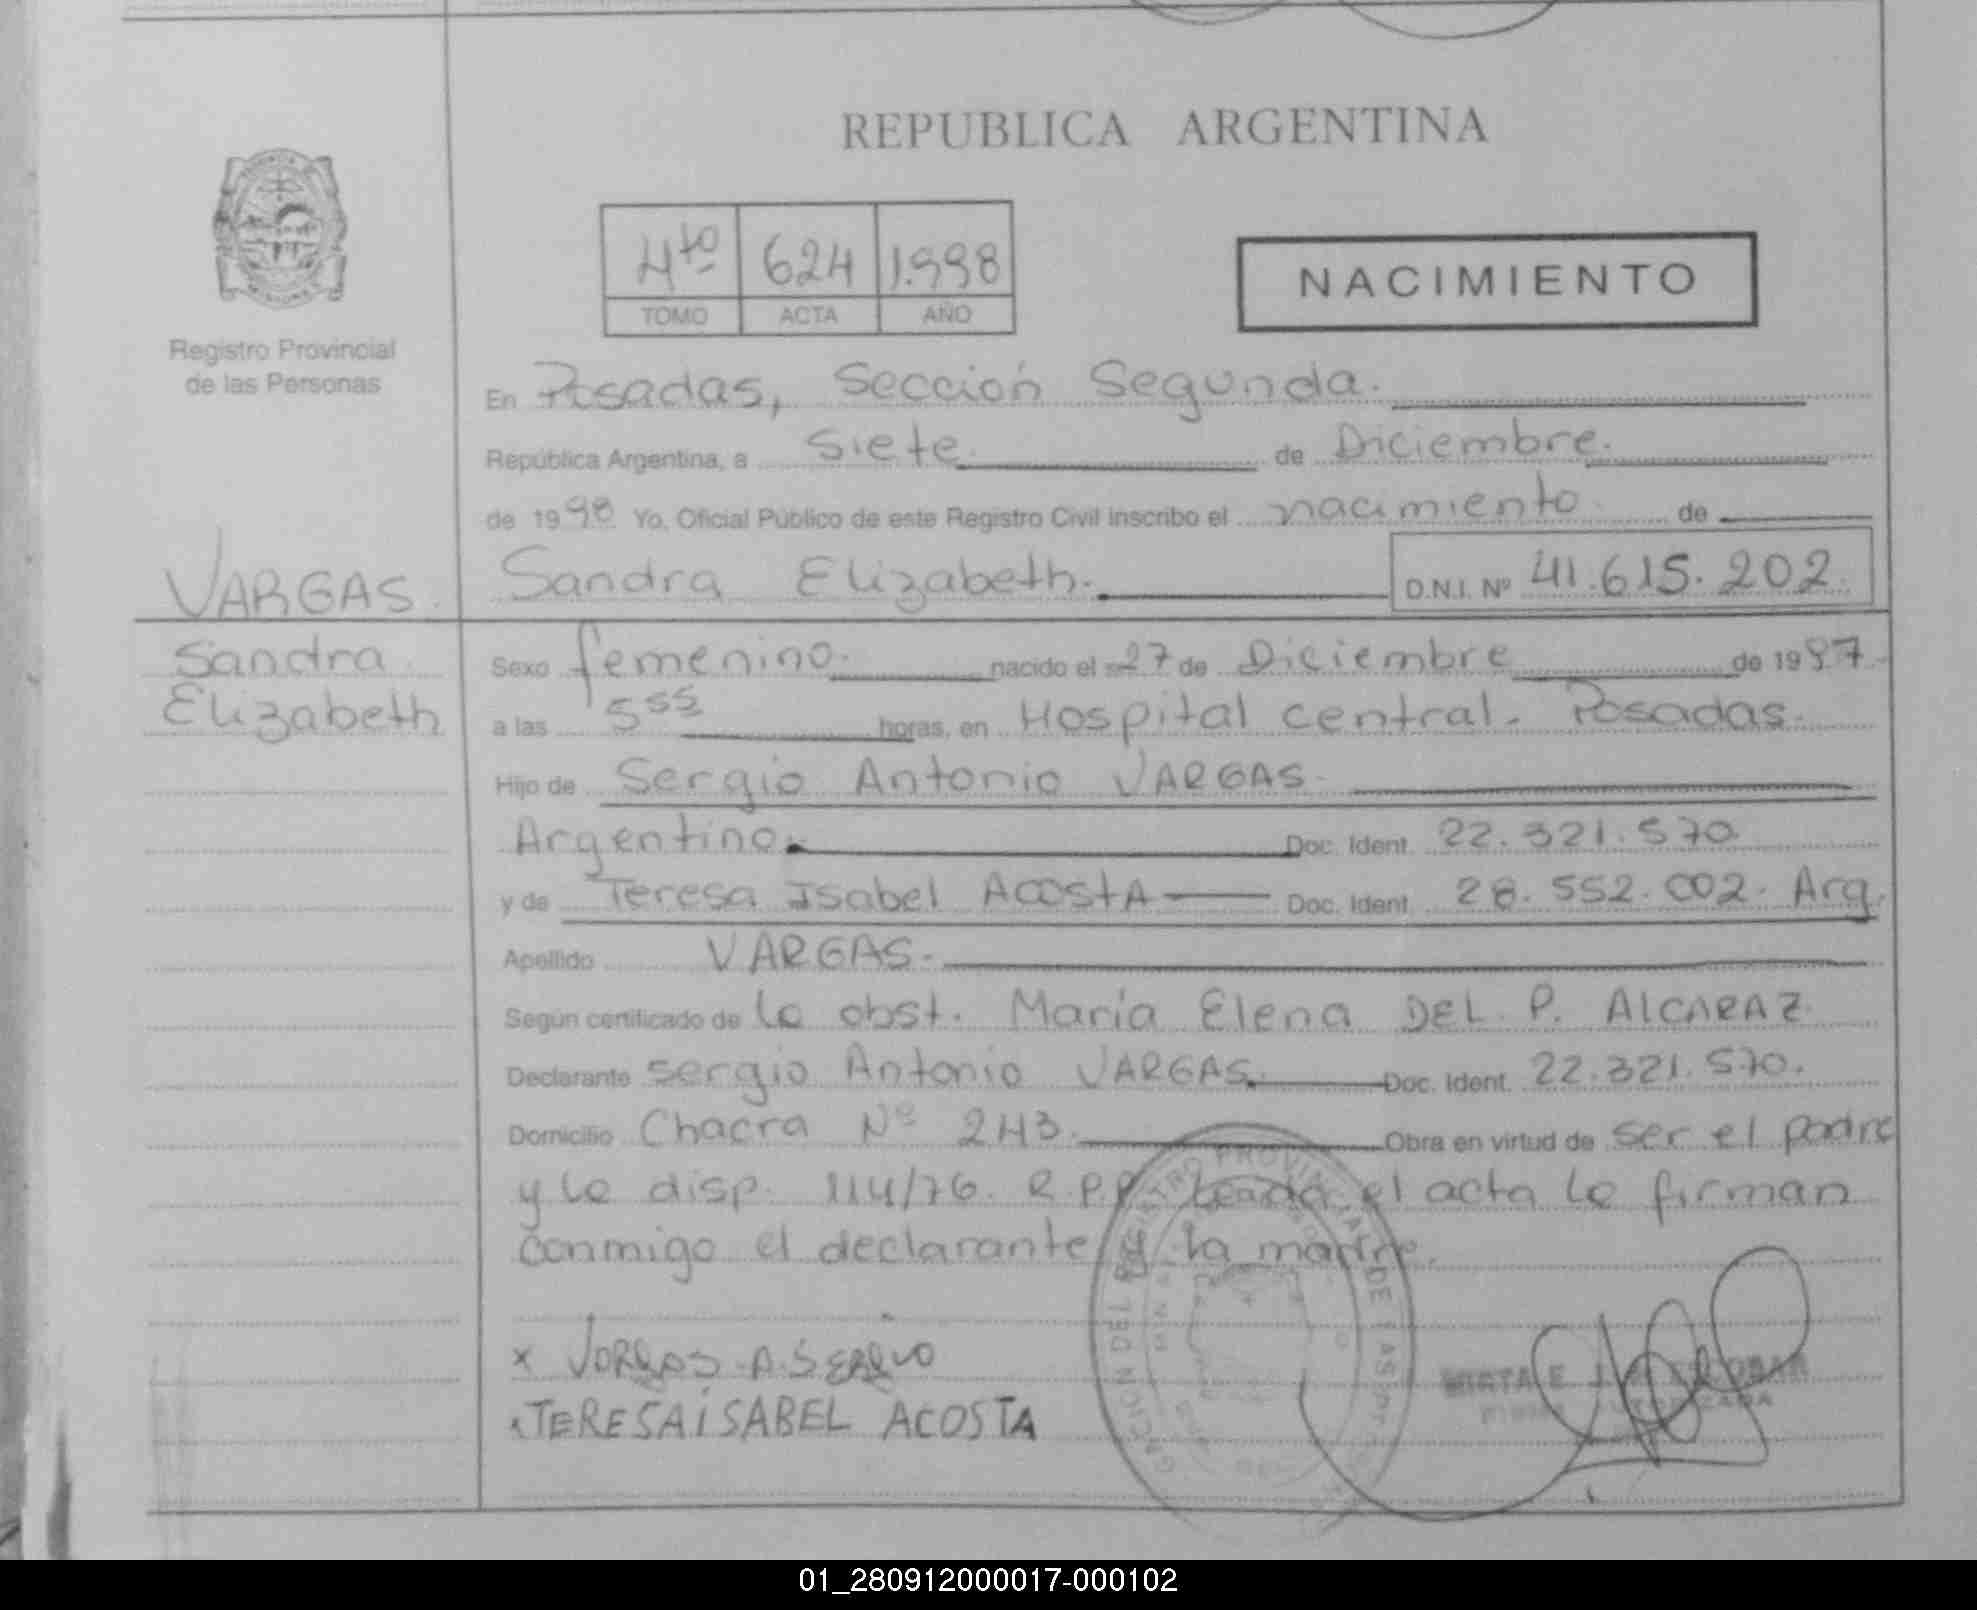 REPUBLICA ARGENTINA
4to 624 1.998
TOMO ACTA AÑO
NACIMIENTO
Registro Provincial
de las Personas
En Posadas, Sección Segunda.
República Argentina, a Siete de Diciembre.
de 1998 Yo, Oficial Público de este Registro Civil inscribo el nacimiento de
VARGAS
Sandra
Elizabeth
Sandra Elizabeth. D.N.I. Nº 41.615.202.
Sexo femenino. nacido el 27 de Diciembre de 1997.
a las 5 55 horas, en Hospital central. Posadas.
Hijo de Sergio Antonio VARGAS.
Argentino. Doc. Ident. 22.321.570
y de Teresa Isabel ACOSTA Doc. Ident. 28.552.002. Arg.
Apellido VARGAS.
Según certificado de la obst. María Elena DEL P. ALCARAZ
Declarante Sergio Antonio VARGAS. Doc. Ident. 22.321.570.
Domicilio Chacra Nº 243. Obra en virtud de ser el padre
y la disp. 114/76. R.P.P. Leada el acta la firman
conmigo el declarante y la madre.
x VARGAS A. SERGIO
TERESA ISABEL ACOSTA
ESCOBAR
01_280912000017-000102